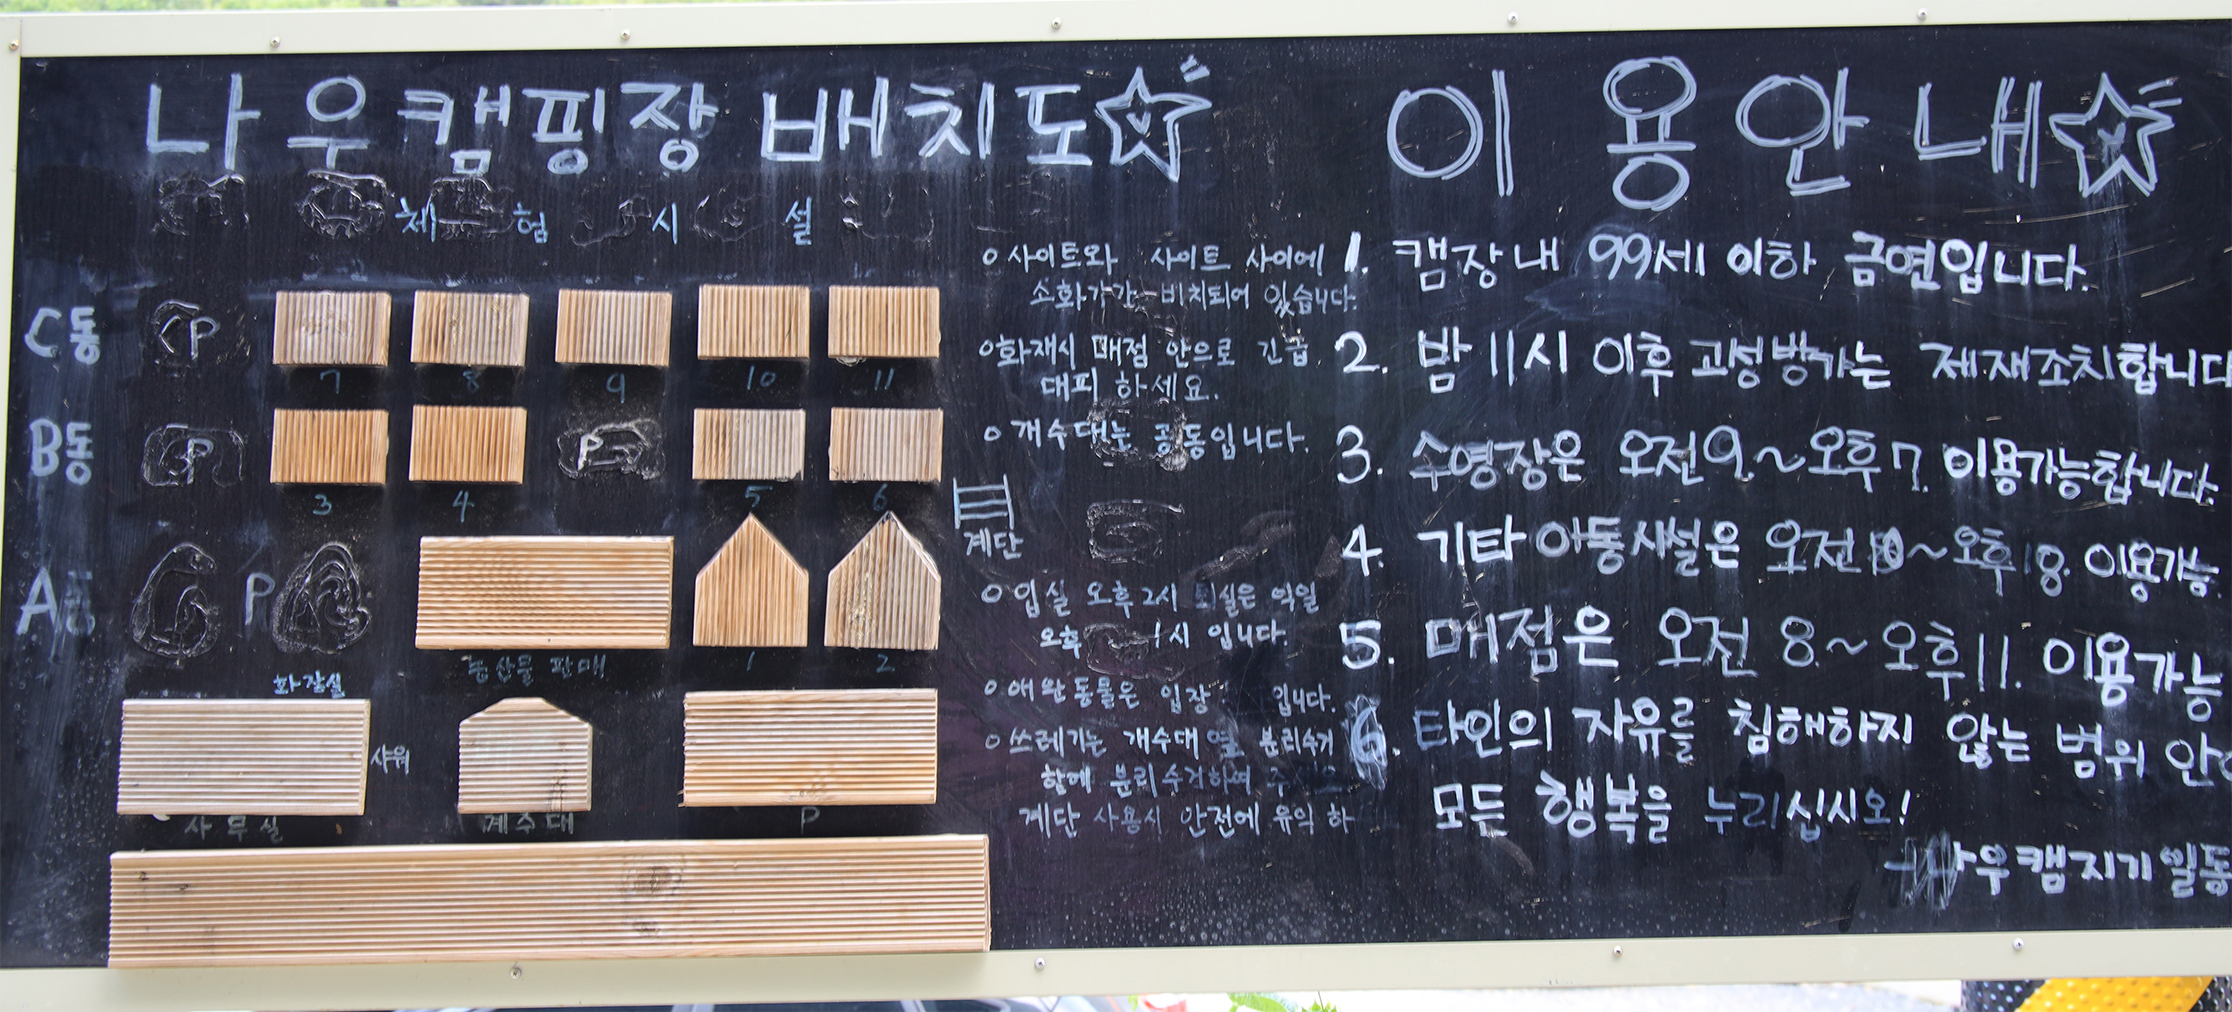 나우캠핑장 배치도
체험시설
C동 P
7 8 9 10 11
B동 P P
3 4 5 6
계단
A동 P
농산물 판매 1 2
화장실
샤워
사무실 계수대 P
o 사이트와 사이트 사이에
소화기가 비치되어 있습니다.
o 화재시 매점 안으로 긴급
대피 하세요.
o 개수대는 공동입니다.
o 입실 오후 2시 퇴실은 익일
오후 1시 입니다.
o 애완동물은 입장 입니다.
o 쓰레기는 개수대 옆 분리수거
함에 분리수거하여 주십시오
계단 사용시 안전에 유의 하
이용안내
1. 캠장내 99세 이하 금연입니다.
2. 밤 11시 이후 고성방가는 제재조치합니다
3. 수영장은 오전 9.~오후 7. 이용가능합니다.
4. 기타 아동시설은 오전 10~오후 8. 이용가능.
5. 매점은 오전 8.~오후 11. 이용가능
6. 타인의 자유를 침해하지 않는 범위 안
모든 행복을 누리십시오!
나우캠지기 일동